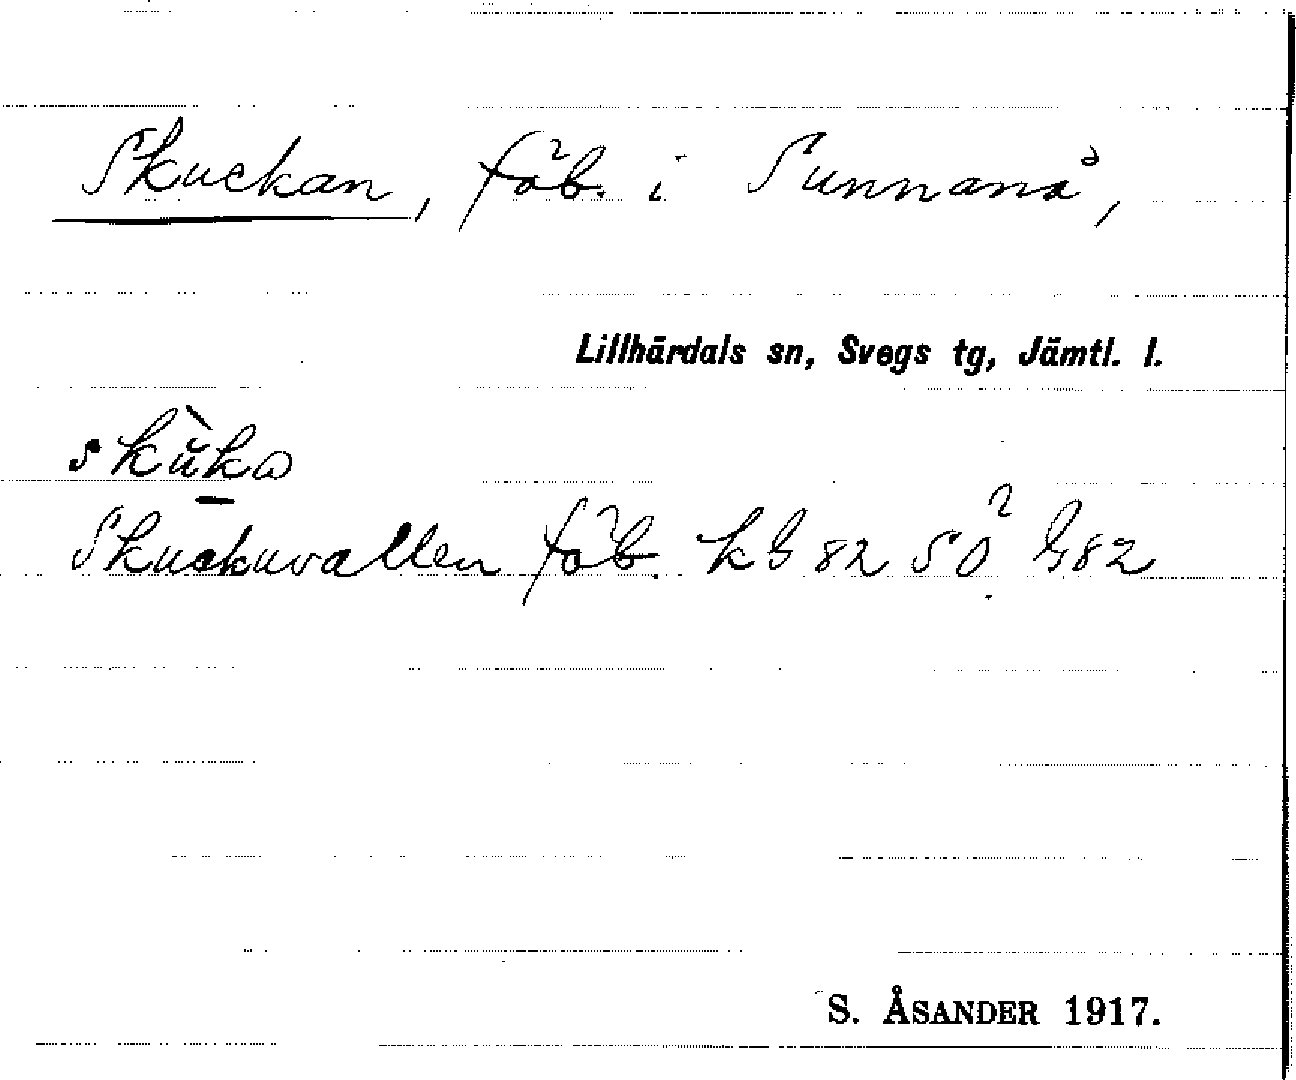 Skuckan, fäb. i Sunnanå,
Lillhärdals sn, Svegs tg, Jämtl. l.
Skuckuvallen fäb. kG 82 SÖ G82
S. ÅSANDER 1917.